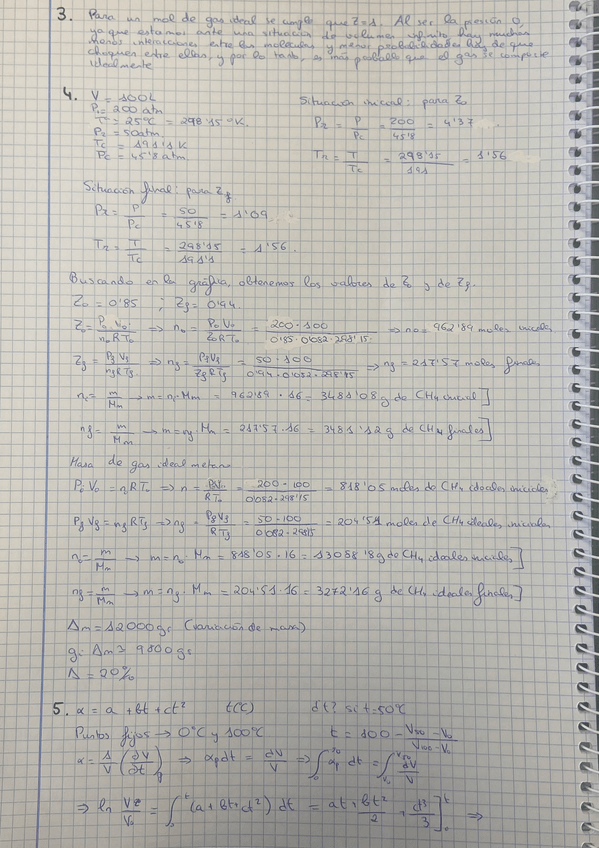 3. Para un mol de gas ideal se cumple que Z=1. Al ser la presión 0,
ya que estamos ante una situación de volumen infinito, hay muchas
menos interacciones entre las moléculas y menos probabilidades hay de que
choquen entre ellas, y por lo tanto, es más probable que el gas se comporte
idealmente.
4. V = 100L
P₁ = 200 atm
T = 25°C = 298'15 °K.
P₂ = 50 atm.
Tc = 191'1 K
Pc = 45'8 atm.
Situación inicial: para Z₀
Pr = P/Pc = 200/45'8 = 4'37
Tr = T/Tc = 298'15/191 = 1'56
Situación final: para Zf
Pr = P/Pc = 50/45'8 = 1'09
Tr = T/Tc = 298'15/191'1 = 1'56.
Buscando en la gráfica, obtenemos los valores de Z₀ y de Zf.
Z₀ = 0'85 ; Zf = 0'94.
Z₀ = P₀V₀/n₀RT₀ ⇒ n₀ = P₀V₀/Z₀RT₀ = 200·100/0'85·0'082·298'15 ⇒ n₀ = 962'89 moles iniciales
Zf = PfVf/nfRTf ⇒ nf = PfVf/ZfRTf = 50·100/0'94·0'082·298'15 ⇒ nf = 217'57 moles finales
m = n·Mm = 962'89 · 16 = 3481'08 g de CH₄ inicial]
nf = m/Mm → m = nf·Mm = 217'57·16 = 3481'12 g de CH₄ finales]
Masa de gas ideal metano
P₀V₀ = nRT₀ ⇒ n = P₀V₀/RT₀ = 200·100/0'082·298'15 = 818'05 moles de CH₄ ideales iniciales
PfVf = nfRTf ⇒ nf = PfVf/RTf = 50·100/0'082·298'15 = 204'51 moles de CH₄ ideales iniciales
n₀ = m/Mm → m = n₀·Mm = 818'05·16 = 13088'8 g de CH₄ ideales iniciales]
nf = m/Mm → m = nf·Mm = 204'51·16 = 3272'16 g de CH₄ ideales finales]
Δm = 12000 g. (variación de masa)
gi Δm = 9800 g.
Δ = 20%
5. α = a + bt + ct² t(C) dt? si t=50°C
Puntos fijos → 0°C y 100°C t = 100 · V₅₀ - V₀/V₁₀₀ - V₀
α = 1/V (∂V/∂t)p ⇒ αp dt = dV/V ⇒ ∫ αp dt = ∫ dV/V
⇒ ln V₂/V₀ = ∫₀ᵗ (a + bt + ct²) dt = at + bt²/2 + ct³/3 ]₀ᵗ ⇒